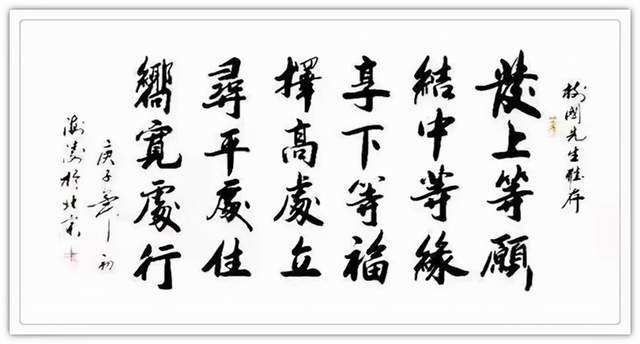 國先生雅存
發上等願
結中等緣
享下等福
擇高處立
尋平處住
嚮寬處行
庚子年初
海濤於北京